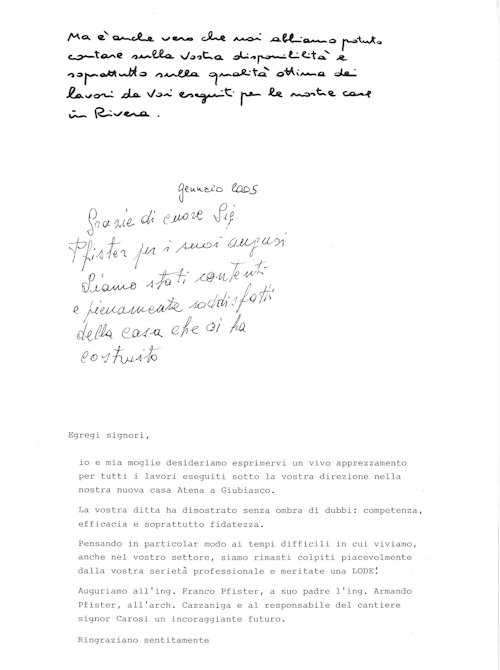 Ma è anche vero che noi abbiamo potuto
contare sulla Vostra disponibilità e
soprattutto sulla qualità ottima dei
lavori da Voi eseguiti per le nostre case
in Rivera.
gennaio 2005
Grazie di cuore Sig.
Pfister per i suoi auguri
Siamo stati contenti
e pienamente soddisfatti
della casa che ci ha
costruito
Egregi signori,
io e mia moglie desideriamo esprimervi un vivo apprezzamento
per tutti i lavori eseguiti sotto la vostra direzione nella
nostra nuova casa Atena a Giubiasco.
La vostra ditta ha dimostrato senza ombra di dubbi: competenza,
efficacia e soprattutto fidatezza.
Pensando in particolar modo ai tempi difficili in cui viviamo,
anche nel vostro settore, siamo rimasti colpiti piacevolmente
dalla vostra serietà professionale e meritate una LODE!
Auguriamo all'ing. Franco Pfister, a suo padre l'ing. Armando
Pfister, all'arch. Cazzaniga e al responsabile del cantiere
signor Carosi un incoraggiante futuro.
Ringraziano sentitamente